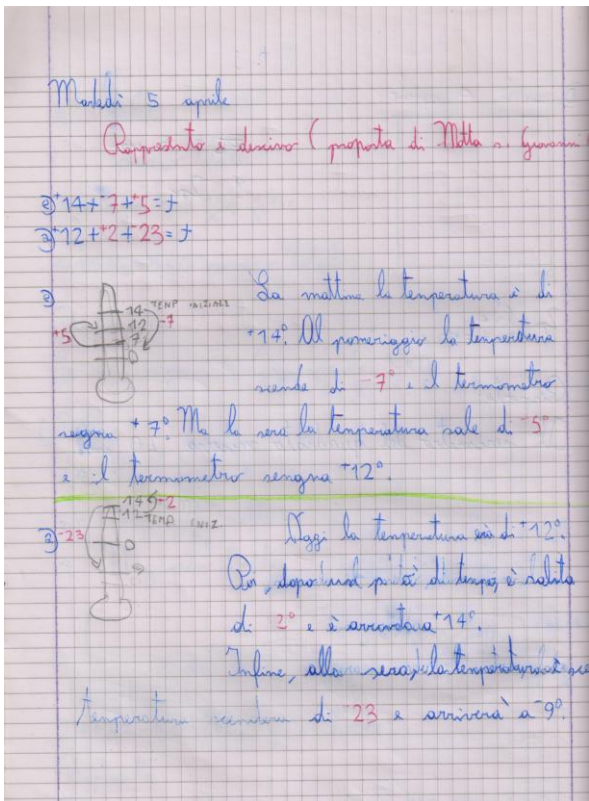 Martedì 5 aprile
Rappresento e descrivo (proposta di Motta s. Giovanni
2) +14+-7++5=+
3) +12++2+-23=+
2)
14 TEMP INIZIALE
12 -7
+5 7
0
La mattina la temperatura è di
+14°. Al pomeriggio la temperatura
scende di -7° e il termometro
sengna +7°. Ma la sera la temperatura sale di -5°
e il termometro sengna +12°.
3) -23
14 -2
12 TEMP INIZ
0
Oggi la temperatura era di +12°.
Poi, dopo un pò di tempo, è salita
di 2° e è arrivata a +14°.
Infine, alla sera, la temperatura
temperatura scenderà di -23 e arriverà a -9°.